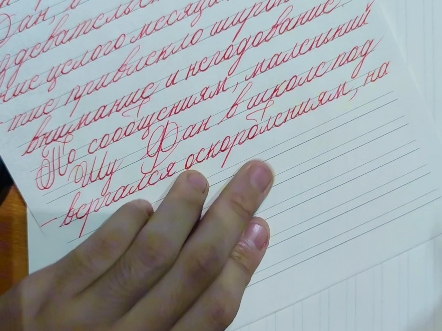 Фан, в
издевательс
ние целого месяца
тие привлекло широк
внимание и негодование
По сообщениям, маленький
Шу Фан в школе под
- вергался оскорблениям, на